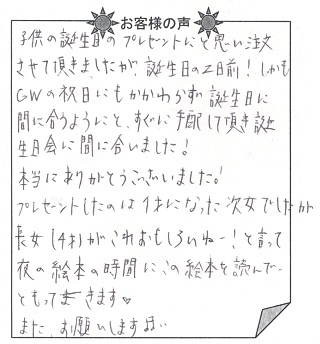 お客様の声
子供の誕生日のプレゼントにと思い注文
させて頂きましたが、誕生日の2日前！しかも
GWの祝日にもかかわらず誕生日に
間に合うようにと、すぐに手配して頂き誕
生日会に間に合いました！
本当にありがとうございました！
プレゼントしたのは1才になった次女でしたが
長女(4才)がこれおもしろいねー！と言って
夜の絵本の時間にこの絵本を読んでー
ともってきます♥
また、お願いします